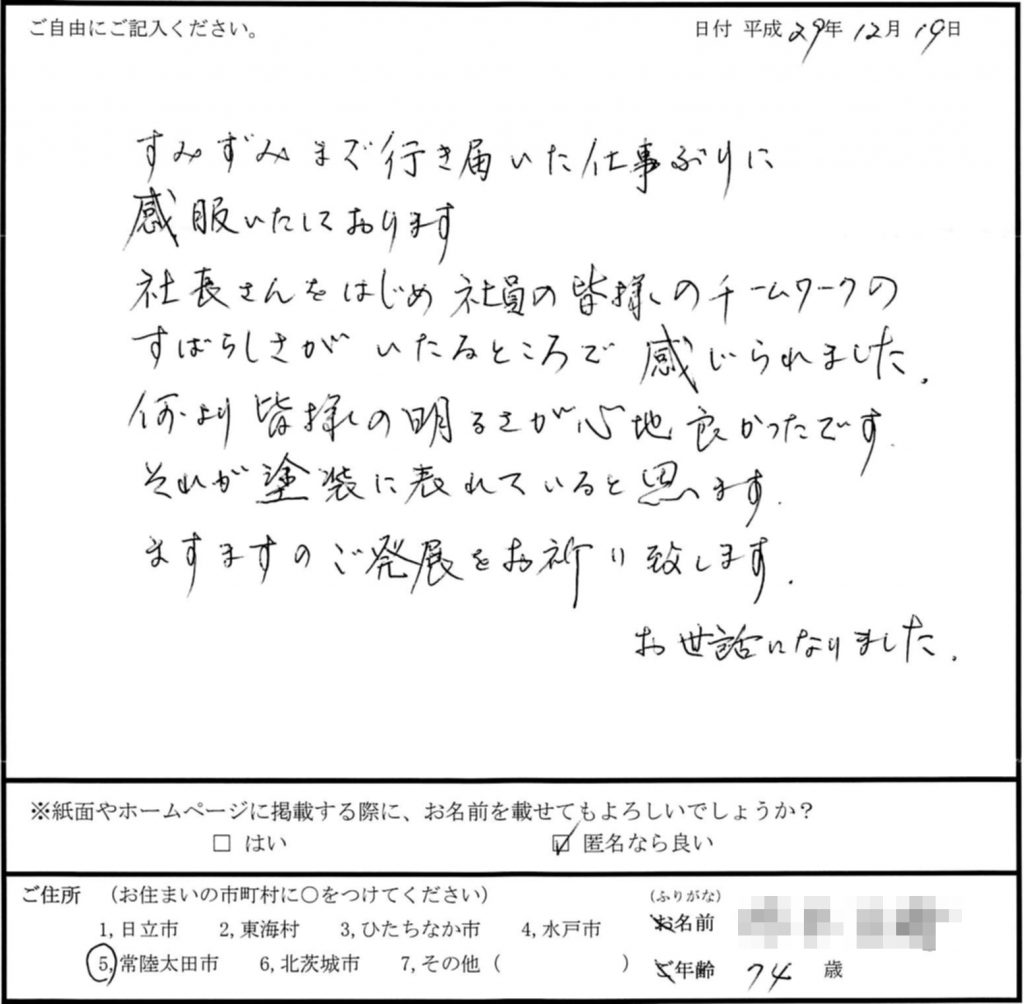 ご自由にご記入ください。 日付 平成 29年 12月 19日
すみずみまで行き届いた仕事ぶりに
感服いたしております
社長さんをはじめ社員の皆様のチームワークの
すばらしさがいたるところで感じられました.
何より皆様の明るさが心地良かったです.
それが塗装に表れていると思います.
ますますのご発展をお祈り致します.
お世話になりました.
※紙面やホームページに掲載する際に、お名前を載せてもよろしいでしょうか?
□ はい ☑ 匿名なら良い
ご住所 (お住まいの市町村に○をつけてください)
1,日立市 2,東海村 3,ひたちなか市 4,水戸市
5,常陸太田市 6,北茨城市 7,その他 ( )
(ふりがな)
お名前
ご年齢 74 歳